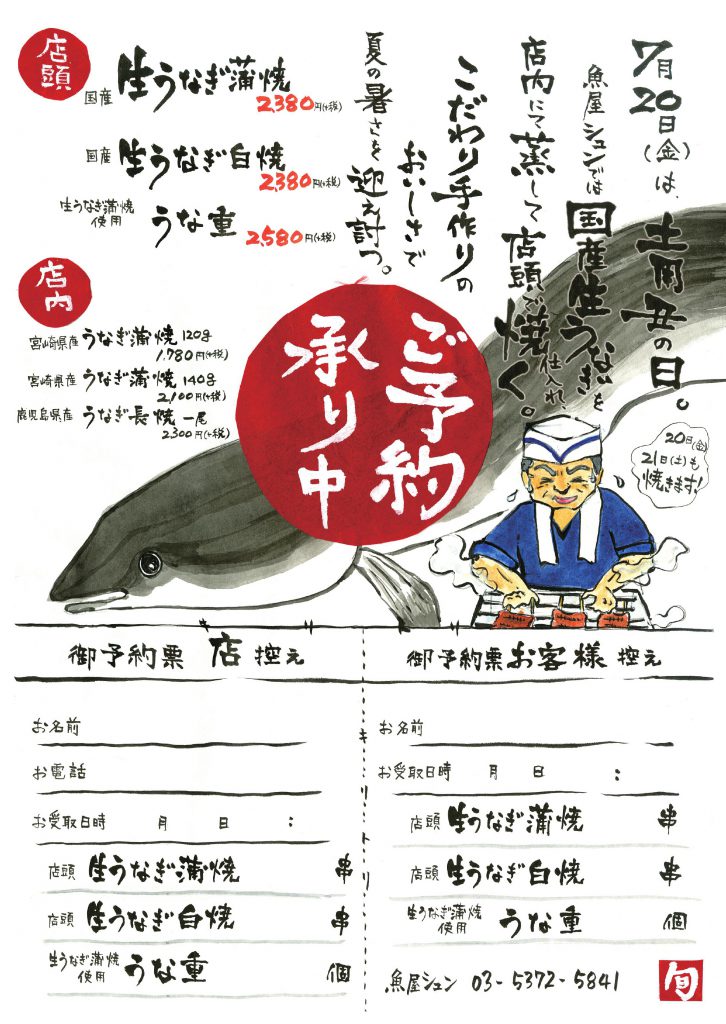 7月20日(金)は、土用丑の日。
魚屋シュンでは国産生うなぎを仕入れ、
店内にて蒸して店頭で焼く。
こだわり手作りの
おいしさで
夏の暑さを迎え討つ。
店頭
国産 生うなぎ蒲焼
2,380円(+税)
国産 生うなぎ白焼
2,380円(+税)
生うなぎ蒲焼使用 うな重
2,580円(+税)
店内
宮崎県産 うなぎ蒲焼 120g
1,780円(+税)
宮崎県産 うなぎ蒲焼 140g
2,100円(+税)
鹿児島県産 うなぎ長焼 一尾
2300円(+税)
ご予約
承り中
20日(金)
21日(土)も
焼きます!
御予約票 店 控え
お名前
お電話
お受取日時 月 日 :
店頭 生うなぎ蒲焼 串
店頭 生うなぎ白焼 串
生うなぎ蒲焼使用 うな重 個
キリトリ
御予約票 お客様 控え
お名前
お受取日時 月 日 :
店頭 生うなぎ蒲焼 串
店頭 生うなぎ白焼 串
生うなぎ蒲焼使用 うな重 個
魚屋シュン 03-5372-5841
旬